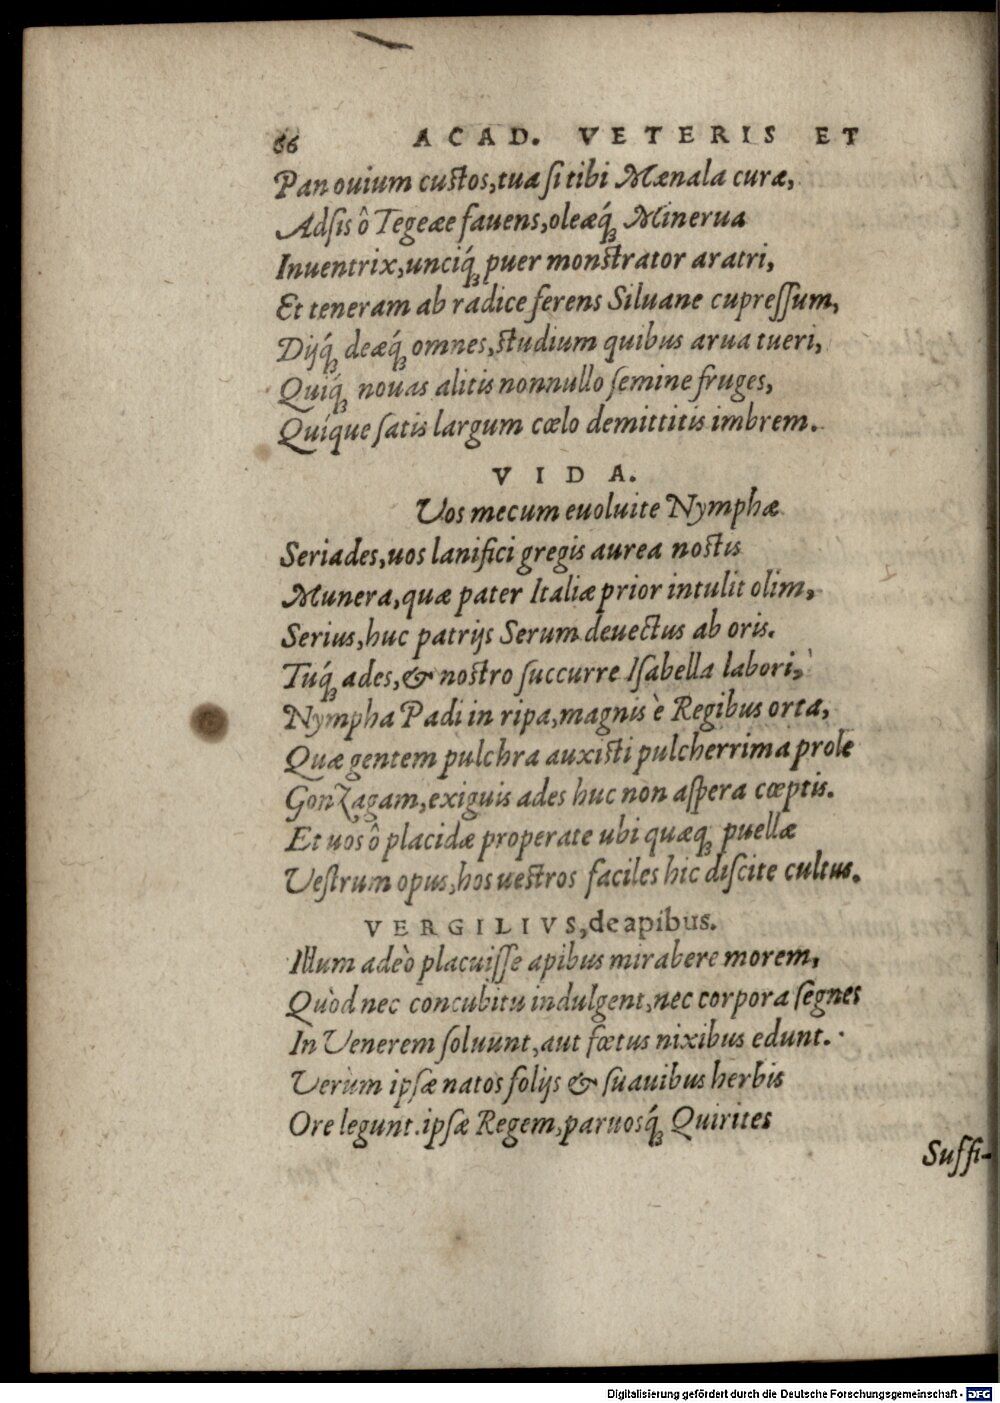 66 ACAD. VETERIS ET
Pan ouium custos, tua si tibi Mænala curæ,
Adsis ô Tegeæe fauens, oleæq́; Minerua
Inuentrix, unciq́; puer monstrator aratri,
Et teneram ab radice ferens Siluane cupressum,
Dijq́; deæq́; omnes, studium quibus arua tueri,
Quiq́; nouas alitis nonnullo semine fruges,
Quíque satis largum cœlo demittitis imbrem.
VIDA.
Vos mecum euoluite Nymphæ
Seriades, uos lanifici gregis aurea nostis
Munera, quæ pater Italiæ prior intulit olim,
Serius, huc patrijs Serum deuectus ab oris.
Tuq́; ades, & nostro succurre Isabella labori,
Nympha Padi in ripa, magnis è Regibus orta,
Quæ gentem pulchra auxisti pulcherrima prole
Gonzagam, exiguis ades huc non aspera cœptis.
Et uos ô placidæ properate ubi quæq; puellæ
Vestrum opus, hos uestros faciles hic discite cultus.
VERGILIVS, de apibus.
Illum adeò placuisse apibus mirabere morem,
Quòd nec concubitu indulgent, nec corpora segnes
In Venerem soluunt, aut fœtus nixibus edunt.
Verùm ipsæ natos folijs & suauibus herbis
Ore legunt. ipsæ Regem, paruosq́; Quirites
Suffi-
Digitalisierung gefördert durch die Deutsche Forschungsgemeinschaft - DFG